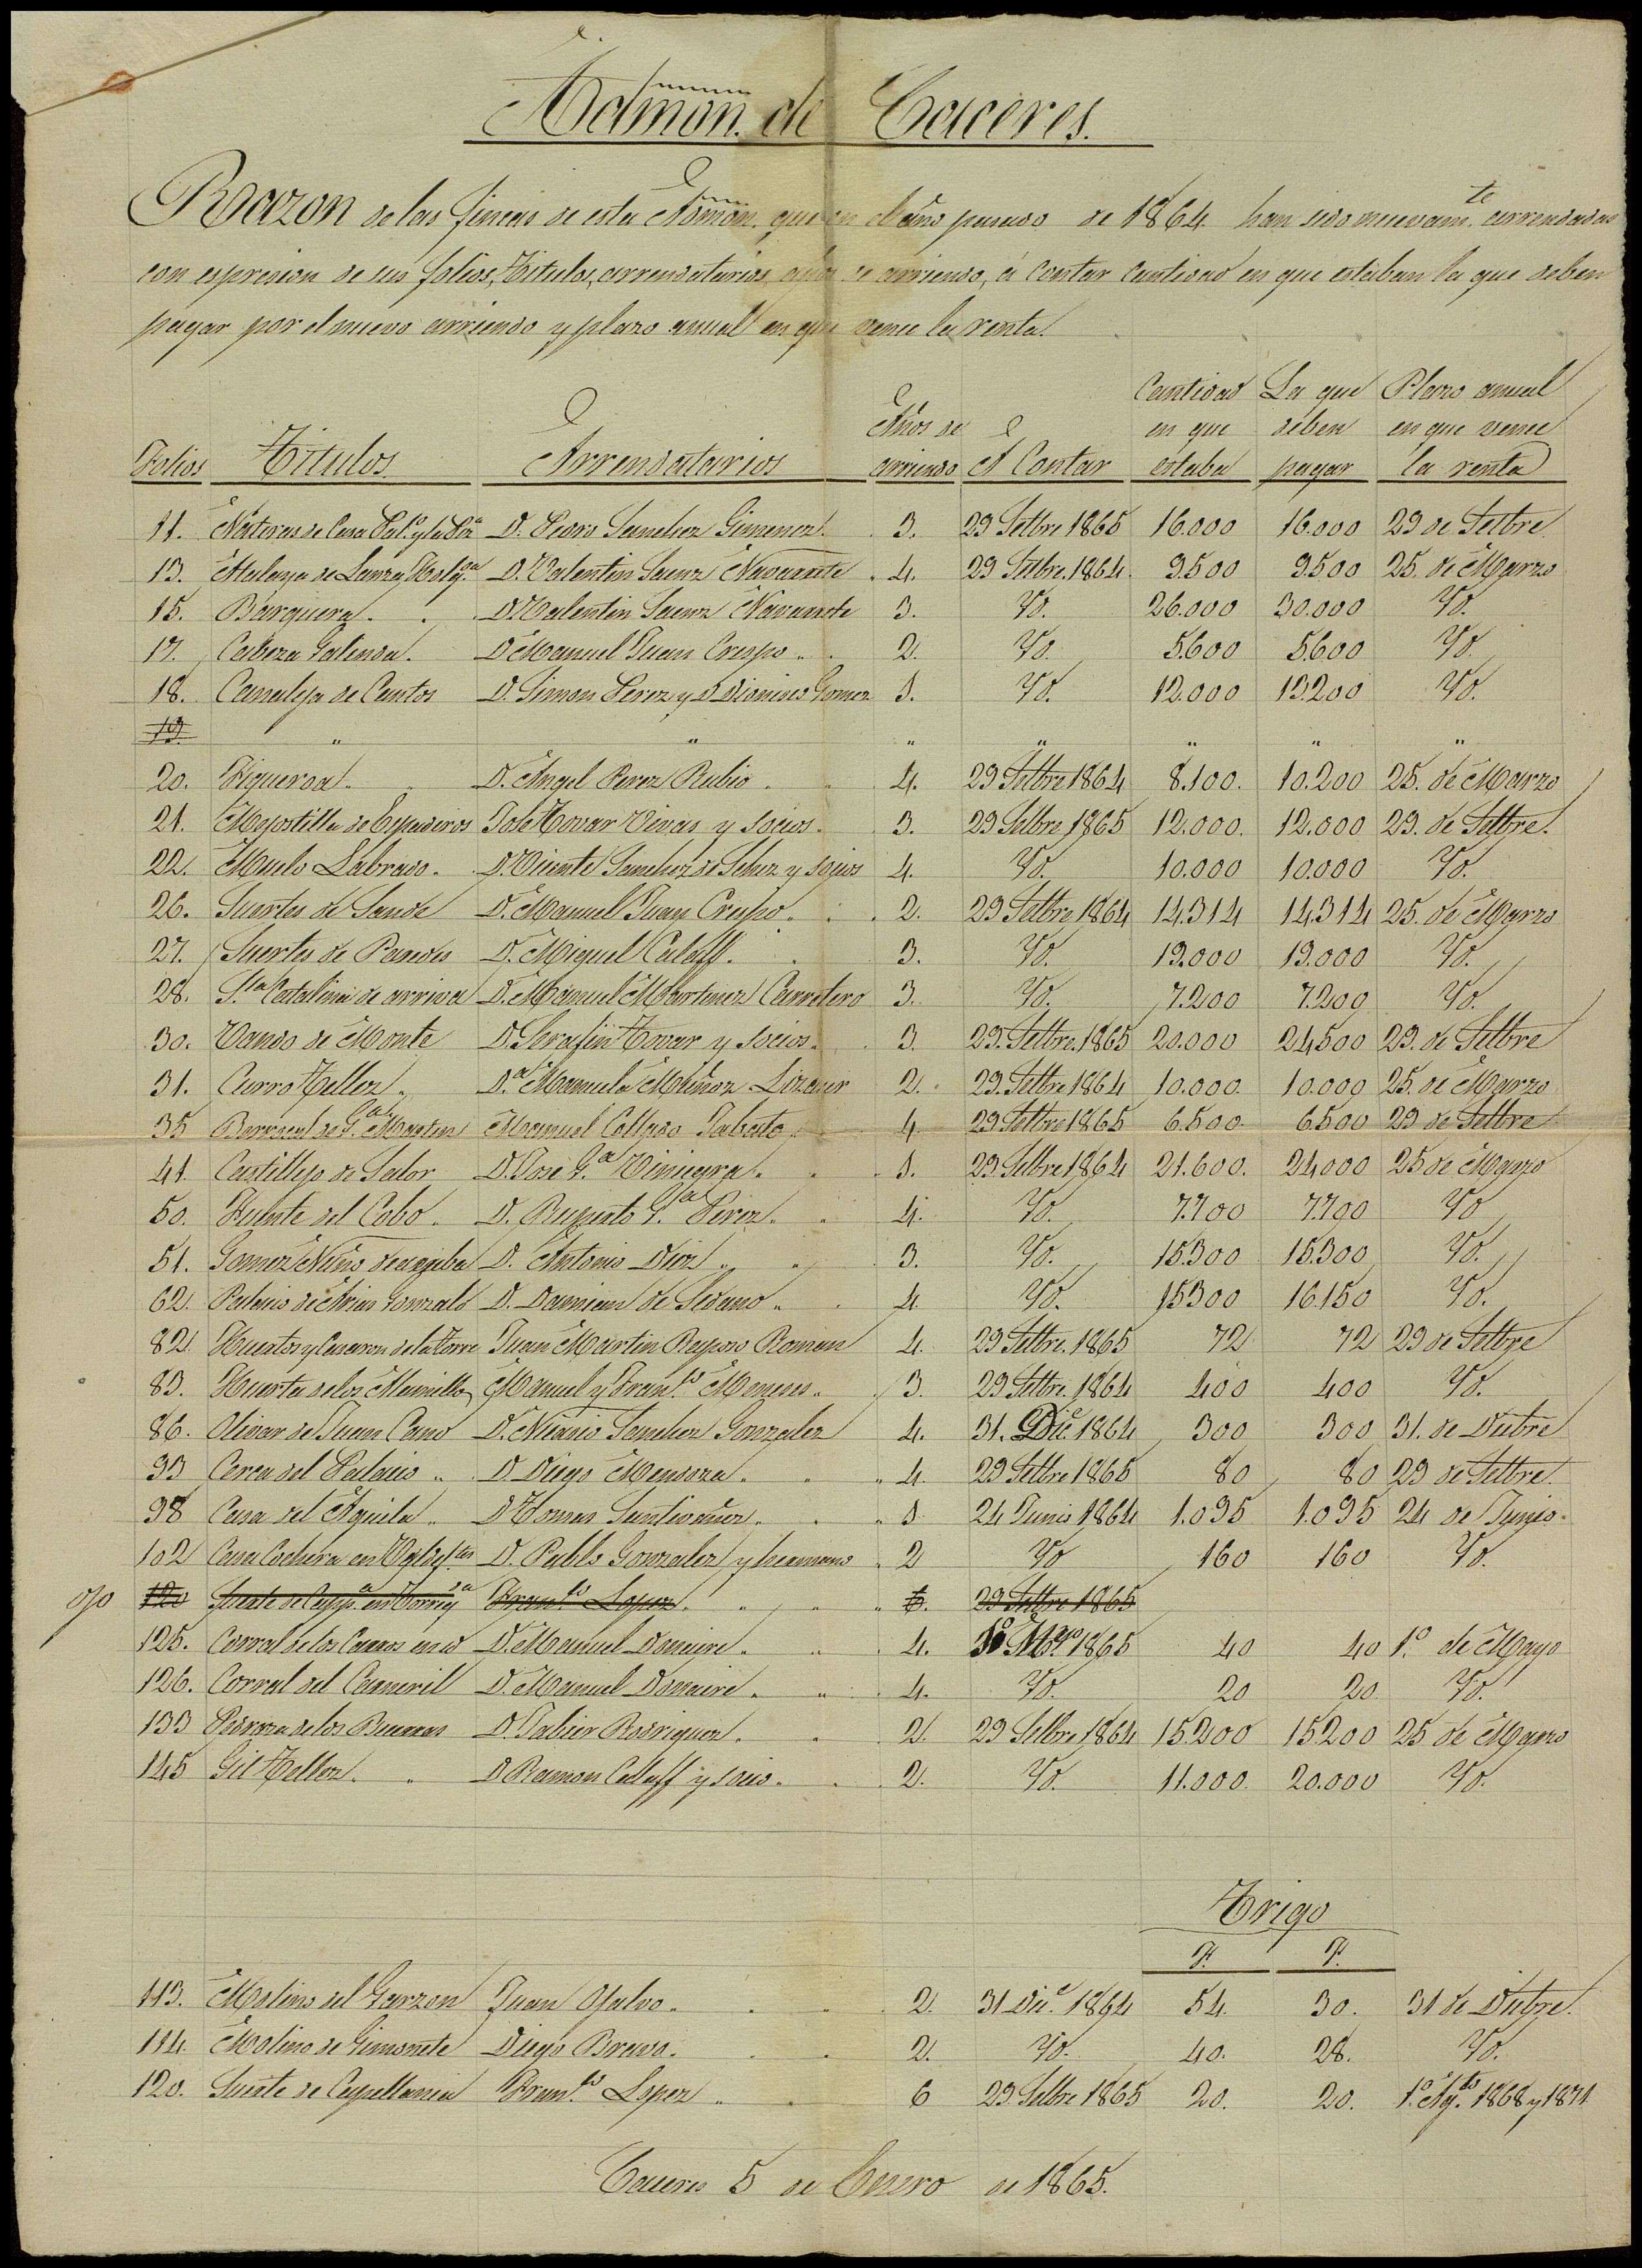 Admon. de Caceres.
Razon de las fincas de esta Admon. que en el año pasado de 1864 han sido nuevamte. arrendadas
con espresion de sus folios, titulos, arrendatarios, años de arriendo, á contar cantidad en que estaban la que deben
pagar por el nuevo arriendo y plazo anual en que vence la renta.
Folios Titulos. Arrendatarios Años de arriendo A Contar Cantidad en que estaba La que deben pagar Plazo anual en que vence la renta
11. Nateras de Casa D. Pedro Sanchez Gimenez. 3. 29 Setbre 1865 16.000 16.000 29 de Setbre
13. Atalaya de D. Valentin Saenz Navarrete 4. 29 Setbre. 1864. 9.500 9.500 25. de Marzo
15. Barquera. D. Valentin Saenz Navarrete 3. Yd. 26.000 30.000 Yd.
17. Cabeza Galinda. D Manuel Juan Crespo 2. Yd. 5.600 5.600 Yd.
18. Canaleja de Cantos D. Simon Perez y D. Dionisio Gomez 1. Yd. 12.000 13.200 Yd.
19. " " " " " " "
20. Higueroa. D. Angel Perez Rubio 4. 29 Setbre 1864 8.100. 10.200 25. de Marzo
21. Mogostilla de Espaderos José Tovar Vivas y socios. 3. 29 Setbre 1865 12.000. 12.000 29. de Setbre.
22. Muelo Labrado. D. Vicente Sanchez de y socios 4. Yd. 10.000 10.000 Yd.
26. Suertes de Sande D. Manuel Juan Crespo. 2. 29 Setbre 1864 14.314 14.314 25. de Marzo
27. Suertes de Paredes D. Miguel Calaff. 3. Yd. 19.000 19.000 Yd.
28. Sta. Catalina de arriva D. Manuel Martinez Carretero 3. Yd. 7.200 7.200 Yd.
30. Vando de Monte D. Serafin Tovar y socios. 3. 29. Setbre. 1865 20.000 24.500 29. de Setbre
31. Curro Tellez D.a Manuela Muñoz 2. 29. Setbre 1864 10.000. 10.000 25. de Marzo
35 Barrocal de G.a Martin Manuel Collado 4 29 Setbre 1865 6.500 6.500 29 de Setbre
41. Castillejo de Salor D. José G.a Viniegra. 1. 29. Setbre 1864 21.600. 24.000 25 de Marzo
50. Fuente del Cobo. D. Ruperto G.a Perez. 4. Yd. 7.700 7.700 Yd
51. Gomez Nuño de arriba D. Antonio Diez 3. Yd. 15.300 15.300 Yd.
62. Palacio de Arias Gonzalo D. Damian de Sedano 4. Yd. 15300 16.150 Yd.
82 Huertos y Casaron de la Torre Juan Martin Reposo Roman 4. 29 Setbre. 1865 72 72 29 de Setbre
83. Huerta de los Manuel y Fran.co Meneses 3. 29 Setbre. 1864 400 400 Yd.
86. Olivar de Juan Cano D. Nicasio Sanchez Gonzalez 4. 31. Dic.e 1864 300 300 31. de Dicbre
93 Cerca del Palacio D Diego Mendoza. 4. 29 Setbre 1865 80 80 29 de Setbre
98 Casa del Aguila D Tomas Santivañez. 1 24 Junio 1864 1.095 1.095 24 de Junio.
102 Casa Cochera en D. Pablo Gonzalez y hermano 2 Yd 160 160 Yd.
ojo 120 Suerte de Capp.a en Fran.co Lopez 6. 29 Setbre 1865
125. Corral de los Carros en id D. Manuel Donaire. 4. 1865 40 40 1.o de Mayo
126. Corral del Carneril D. Manuel Donaire. 4. Yd. 20 20 Yd.
133 Pedraza de los D. Tabier Rodriguez. 2. 29 Setbre 1864 15.200 15.200 25 de Marzo
145 Gil Tellez. D Ramon Calaff y socio. 2. Yd. 11.000. 20.000 Yd.
Trigo
F. F.
113. Molino del Garzon Juan Ojalvo. 2. 31 Dic.e 1864 54. 30. 31 de Dicbre.
114. Molino de Simonete Diego Bravo. 2. Yd. 40. 28. Yd.
120. Suerte de Capellania Fran.co Lopez 6 29 Setbre 1865 20. 20. 1.o Ag.to 1868 y 1871
Caceres 5 de Enero de 1865.